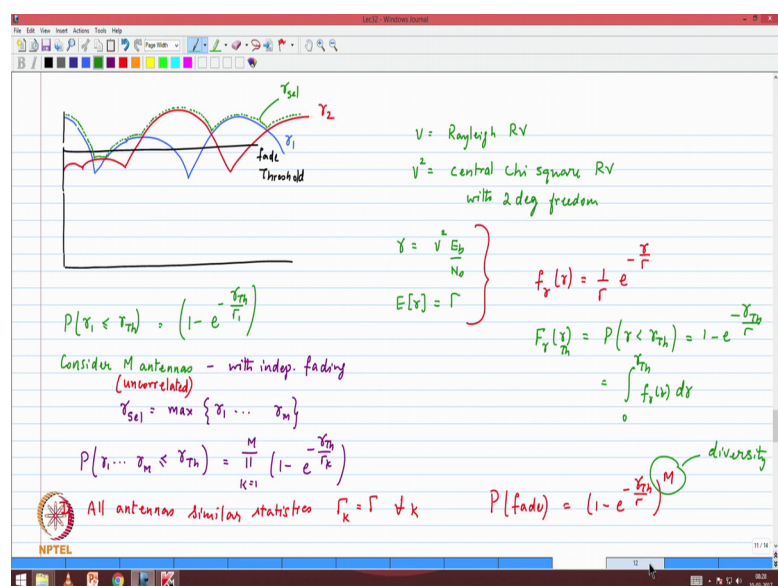 Lec32 - Windows Journal
File Edit View Insert Actions Tools Help
Page Width
B I
γsel
γ2
γ1
fade
Threshold
V = Rayleigh RV
V² = central chi square RV
with 2 deg freedom
γ = V² Eb/N0
E[γ] = Γ
fγ(γ) = 1/Γ e^(-γ/Γ)
Fγ(γTh) = P(γ < γTh) = 1 - e^(-γTh/Γ)
= ∫_0^γTh fγ(γ) dγ
P(γ1 ≤ γTh) = (1 - e^(-γTh/Γ1))
Consider M antennas - with indep. fading
(uncorrelated)
γsel = max {γ1 ... γM}
P(γ1 ... γM ≤ γTh) = ∏_{K=1}^{M} (1 - e^(-γTh/Γk))
All antennas similar statistics Γk = Γ ∀k
P(fade) = (1 - e^(-γTh/Γ))^M
diversity
NPTEL
11 / 14
12
08:28